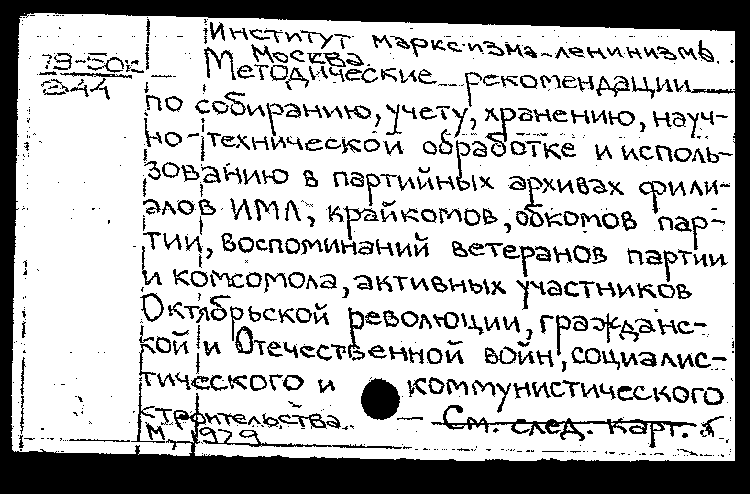 Институт марксизма-ленинизма.
Москва.
79-50к
а44
Методические рекомендации
по собиранию, учету, хранению, науч-
но-технической обработке и исполь-
зованию в партийных архивах фили-
алов ИМЛ, крайкомов, обкомов пар-
тии, воспоминаний ветеранов партии
и комсомола, активных участников
Октябрьской революции, гражданс-
кой и Отечественной войн, социалис-
тического и коммунистического
строительства.
См. след. карт.
М, 1979